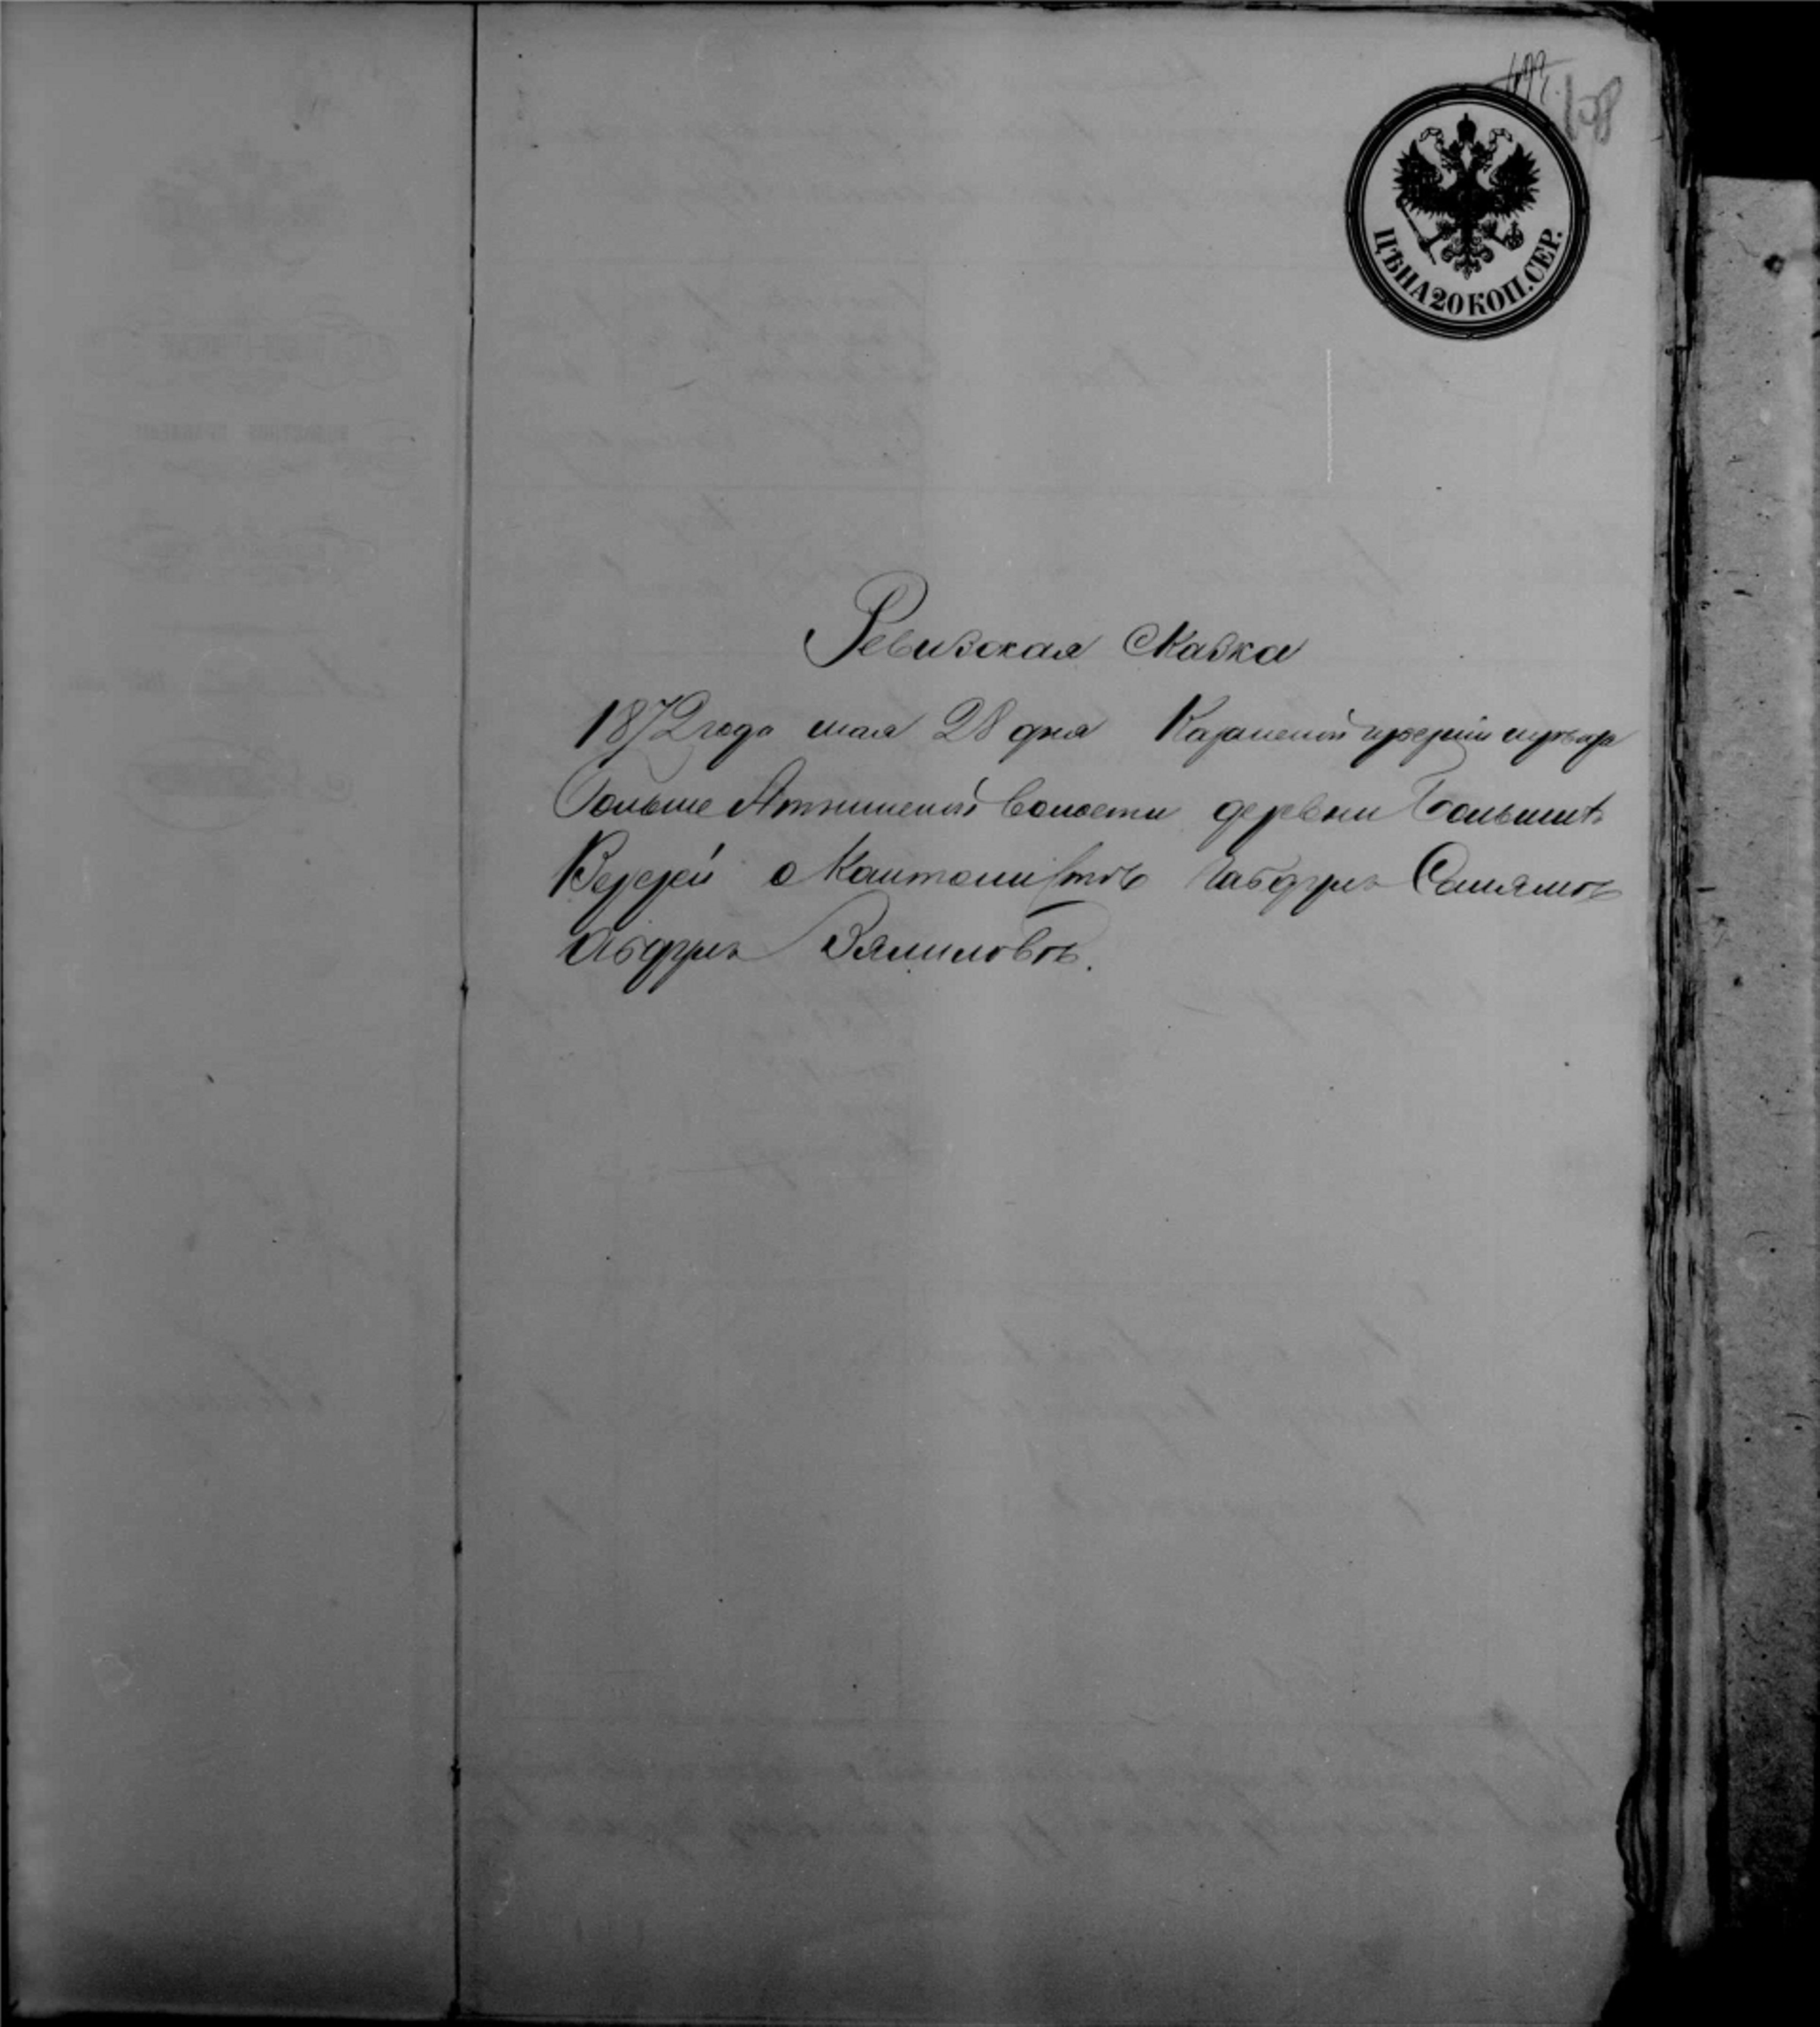 108
ЦѢНА 20 КОП. СЕР.
Ревизская Сказка
1872 года мая 28 дня Казанской губерніи и уѣзда
Больше Атнинской волости деревни Большихъ
Верезей о Кантонистовъ Габдулъ Салямов
Абдулъ Вялиловѣ.